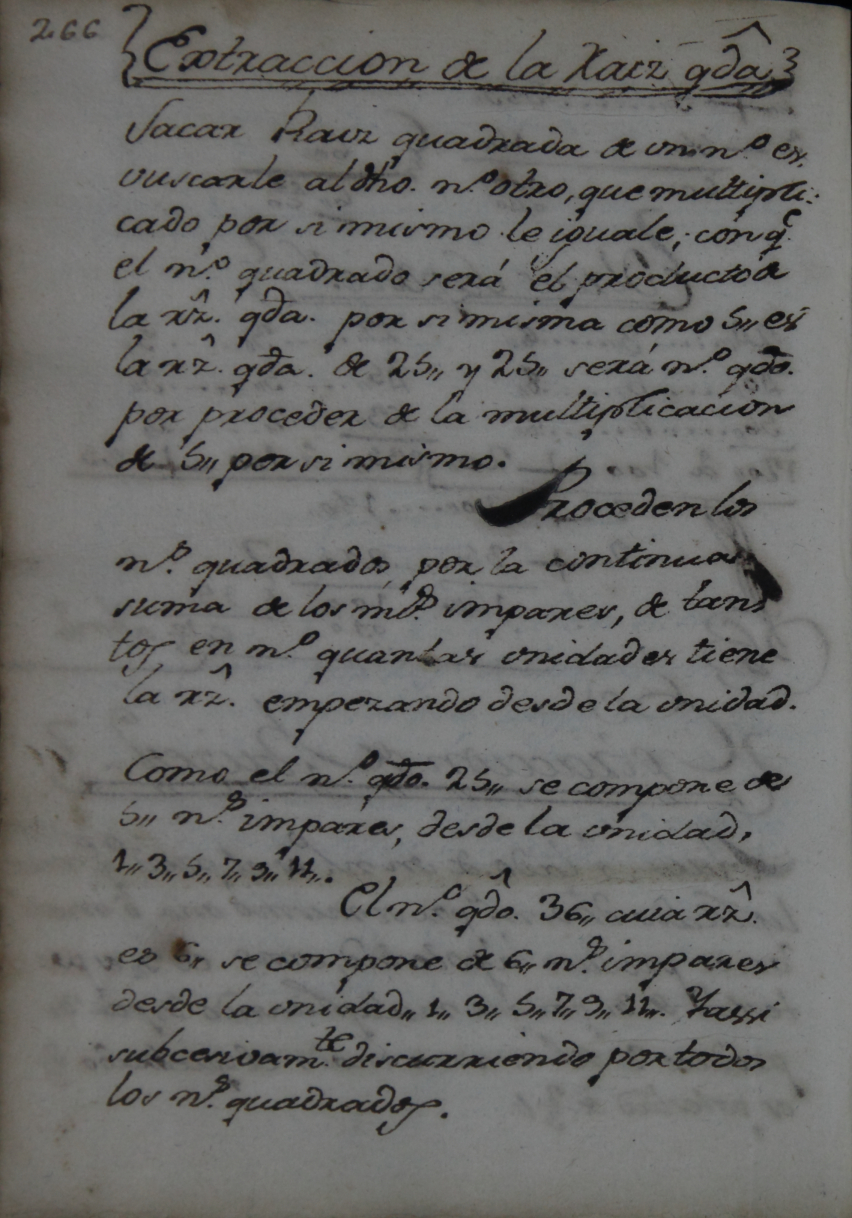 266
Extraccion de la Raiz qda
Sacar Raiz quadrada de un n.º es
vuscarle al dho. n.º otro, que multipli-
cado por si mismo le iguale; con q.e
el n.º quadrado será el producto de
la rz. qda. por si misma como 5,, es
la rz. qda. de 25,, y 25,, será n.º qdo.
por proceder de la multiplicacion
de 5,, por si mismo.
Proceden los
n.s quadrados por la continua
suma de los n.s impares, de tan-
tos en n.º quantas unidades tiene
la rz. empezando desde la unidad.
Como el n.º qdo. 25,, se compone de
5,, n.s impares, desde la unidad,
1,, 3,, 5,, 7,, 9,, 11,,.
El n.º qdo. 36,, cuia rz.
es 6,, se compone de 6,, n.s impares
desde la unidad,, 1,, 3,, 5,, 7,, 9,, 11,,. Y assi
subcesivam.te discurriendo por todos
los n.s quadrados.